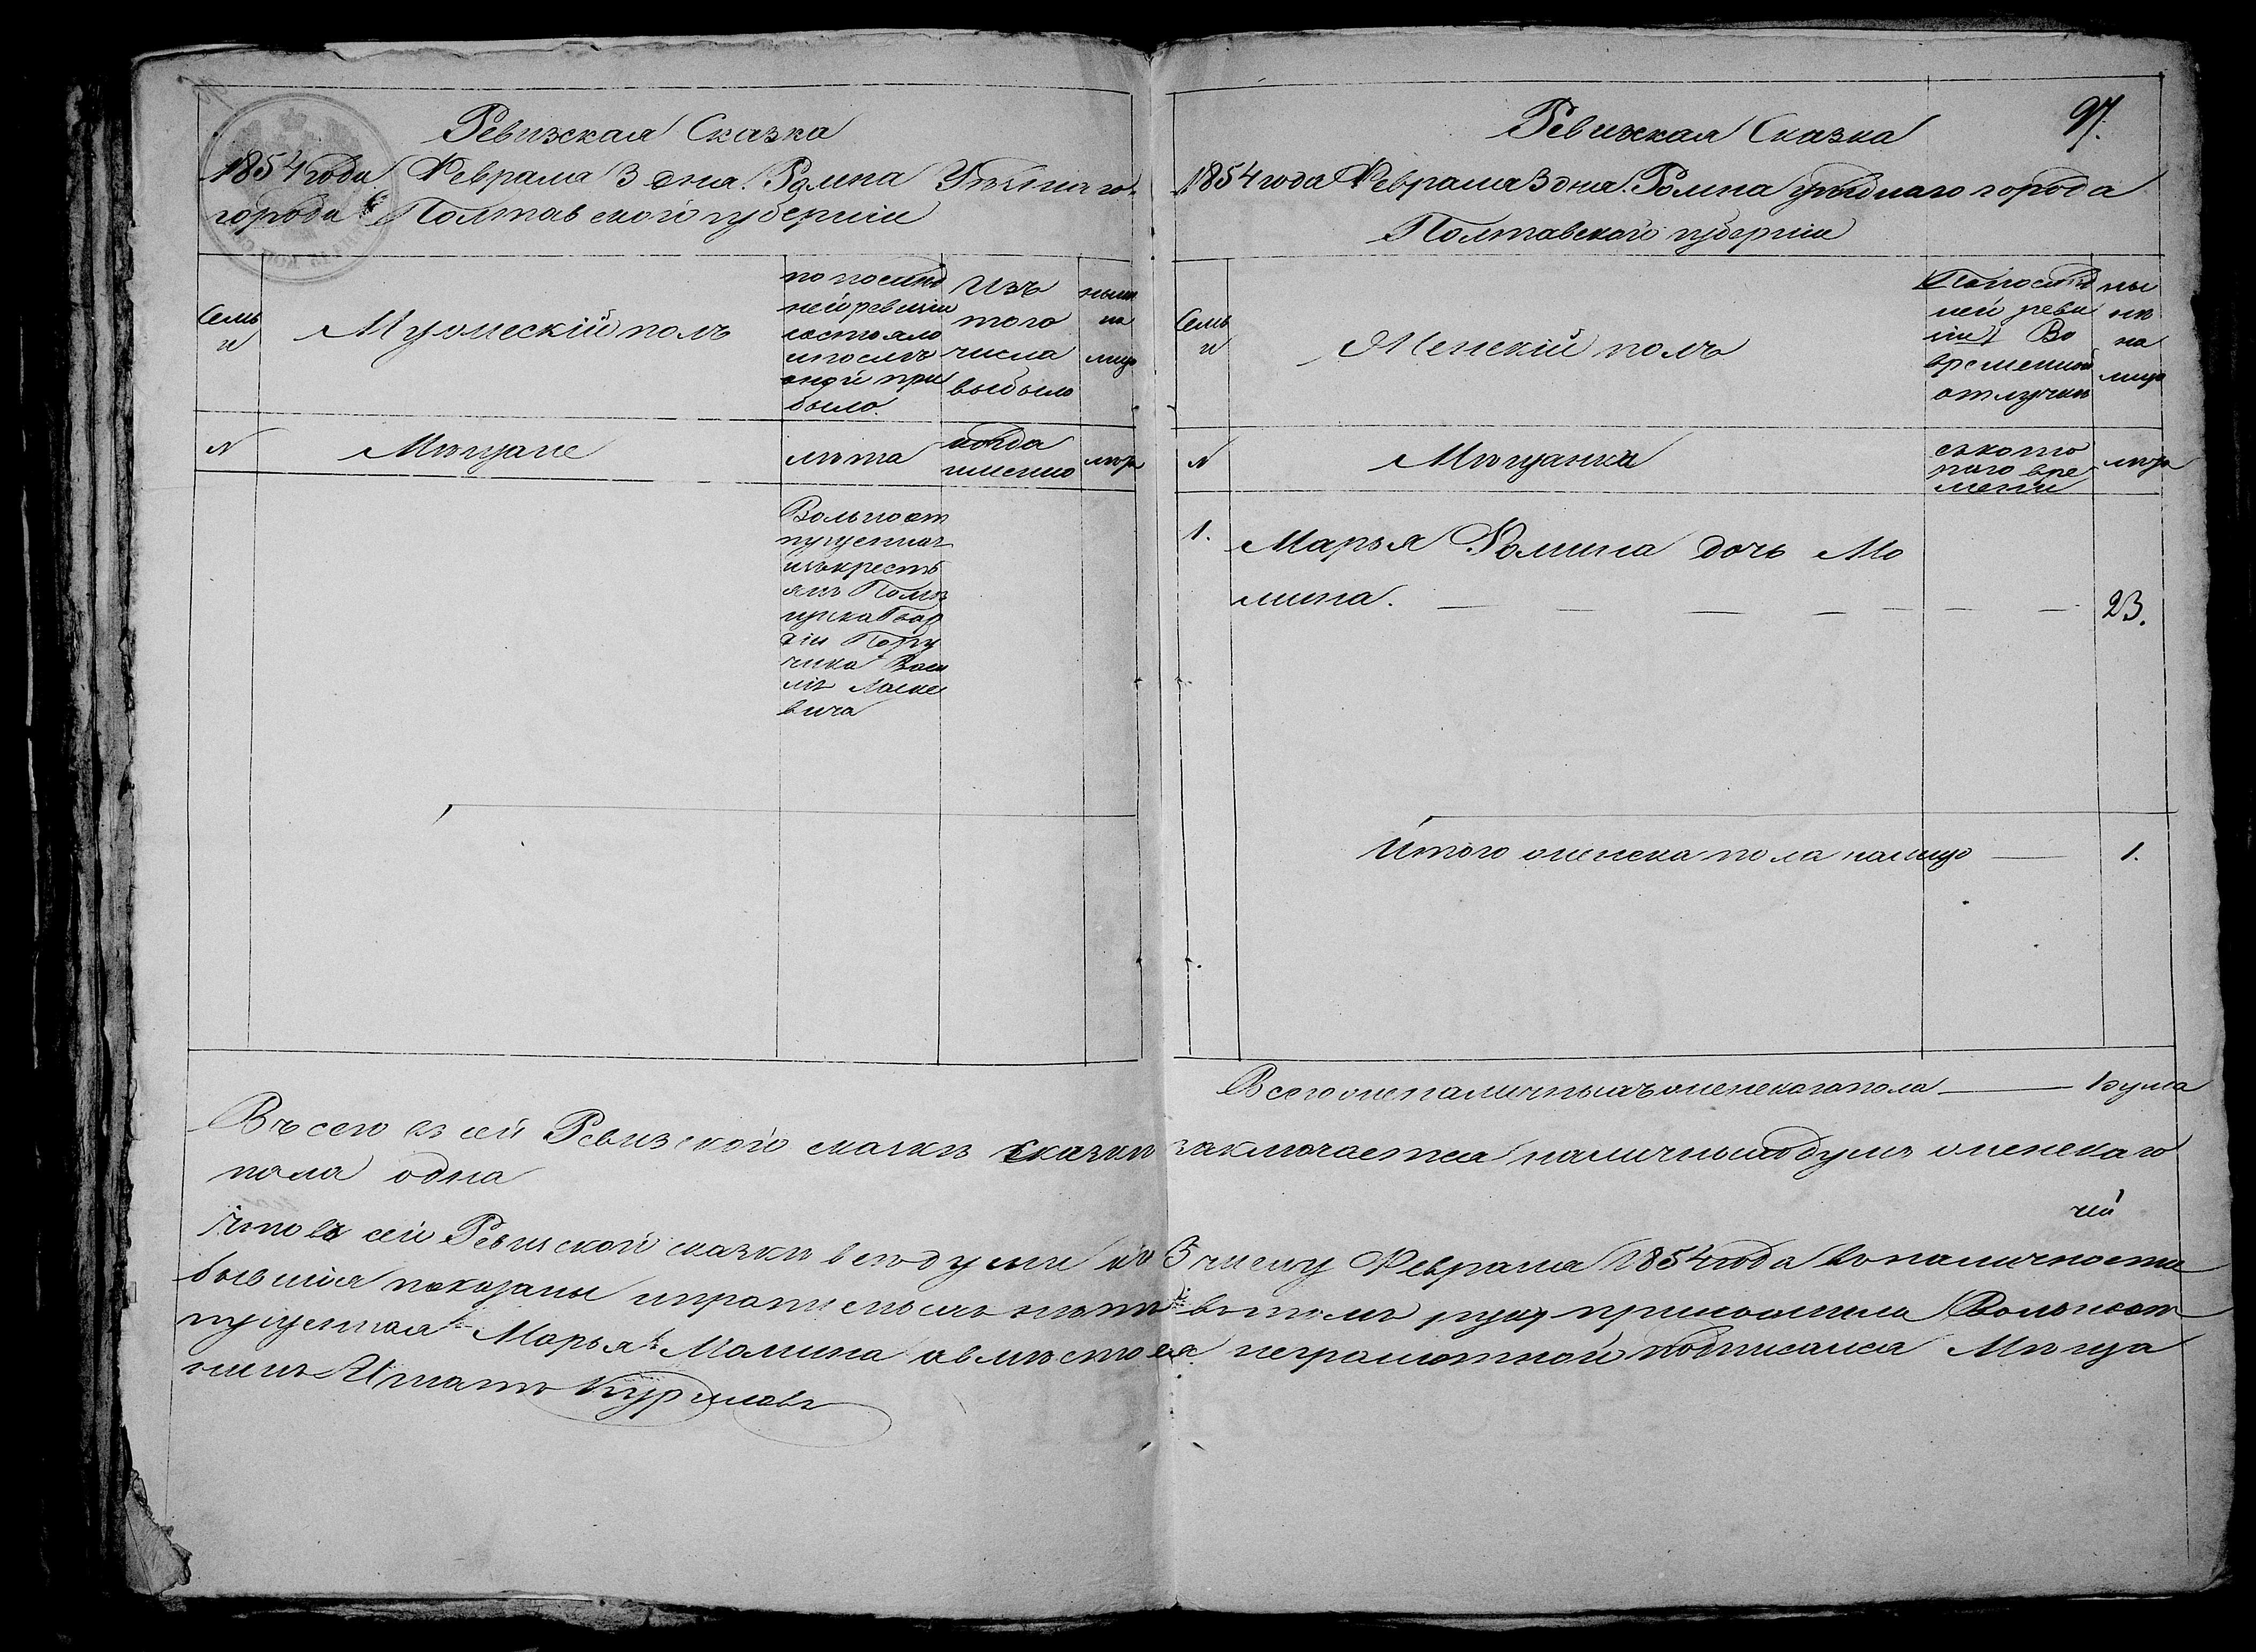 Ревизская Сказка
1854 года Февраля 3 дня. Ромна Уѣзнаго
города Полтавской губерніи
Семь
и
Мужескій полъ
по послѣд
ней ревизіи
состояло
и послѣ
оной при
было.
Изъ
того
числа
выбыло
нынѣ
на
лицо
N
Мѣщане
лѣта
когда
именно
лѣта
Вольноот
пущенная
изъ крестъ
янъ Помѣ
щика Гвар
діи Пору
чика Васи
лія Ласке
вича
97.
Ревизкая Сказка
1854 года Февраля 3 дня. Ромна уѣзднаго города
Полтавской губерніи
Семь
и
Женскій полъ
По послѣд
ней реви
зіи Во
временной
отлучкѣ
ны
нѣ
на
лицо
N
Мѣщанка
съ кото
раго вре
мени
лѣта
1.
Марья Фомина дочь Мо
мина.
23.
Итого женска пола налицо 1.
Всего же наличныхъ женскаго пола 1 душа
Въсего въ сей Ревизской сказкѣ заключается наличныхъ душъ женскаго
пола одна
Что въ сей Ревизской сказкѣ всѣ души къ 3 числу Февраля 1854 года въ наличности
бывшія показаны и прописныхъ нѣтъ въ томъ руку приложила Вольноот
пущенная Марья Момина а вмѣсто ея неграмотной подписался Мѣща
нинъ Игнатъ